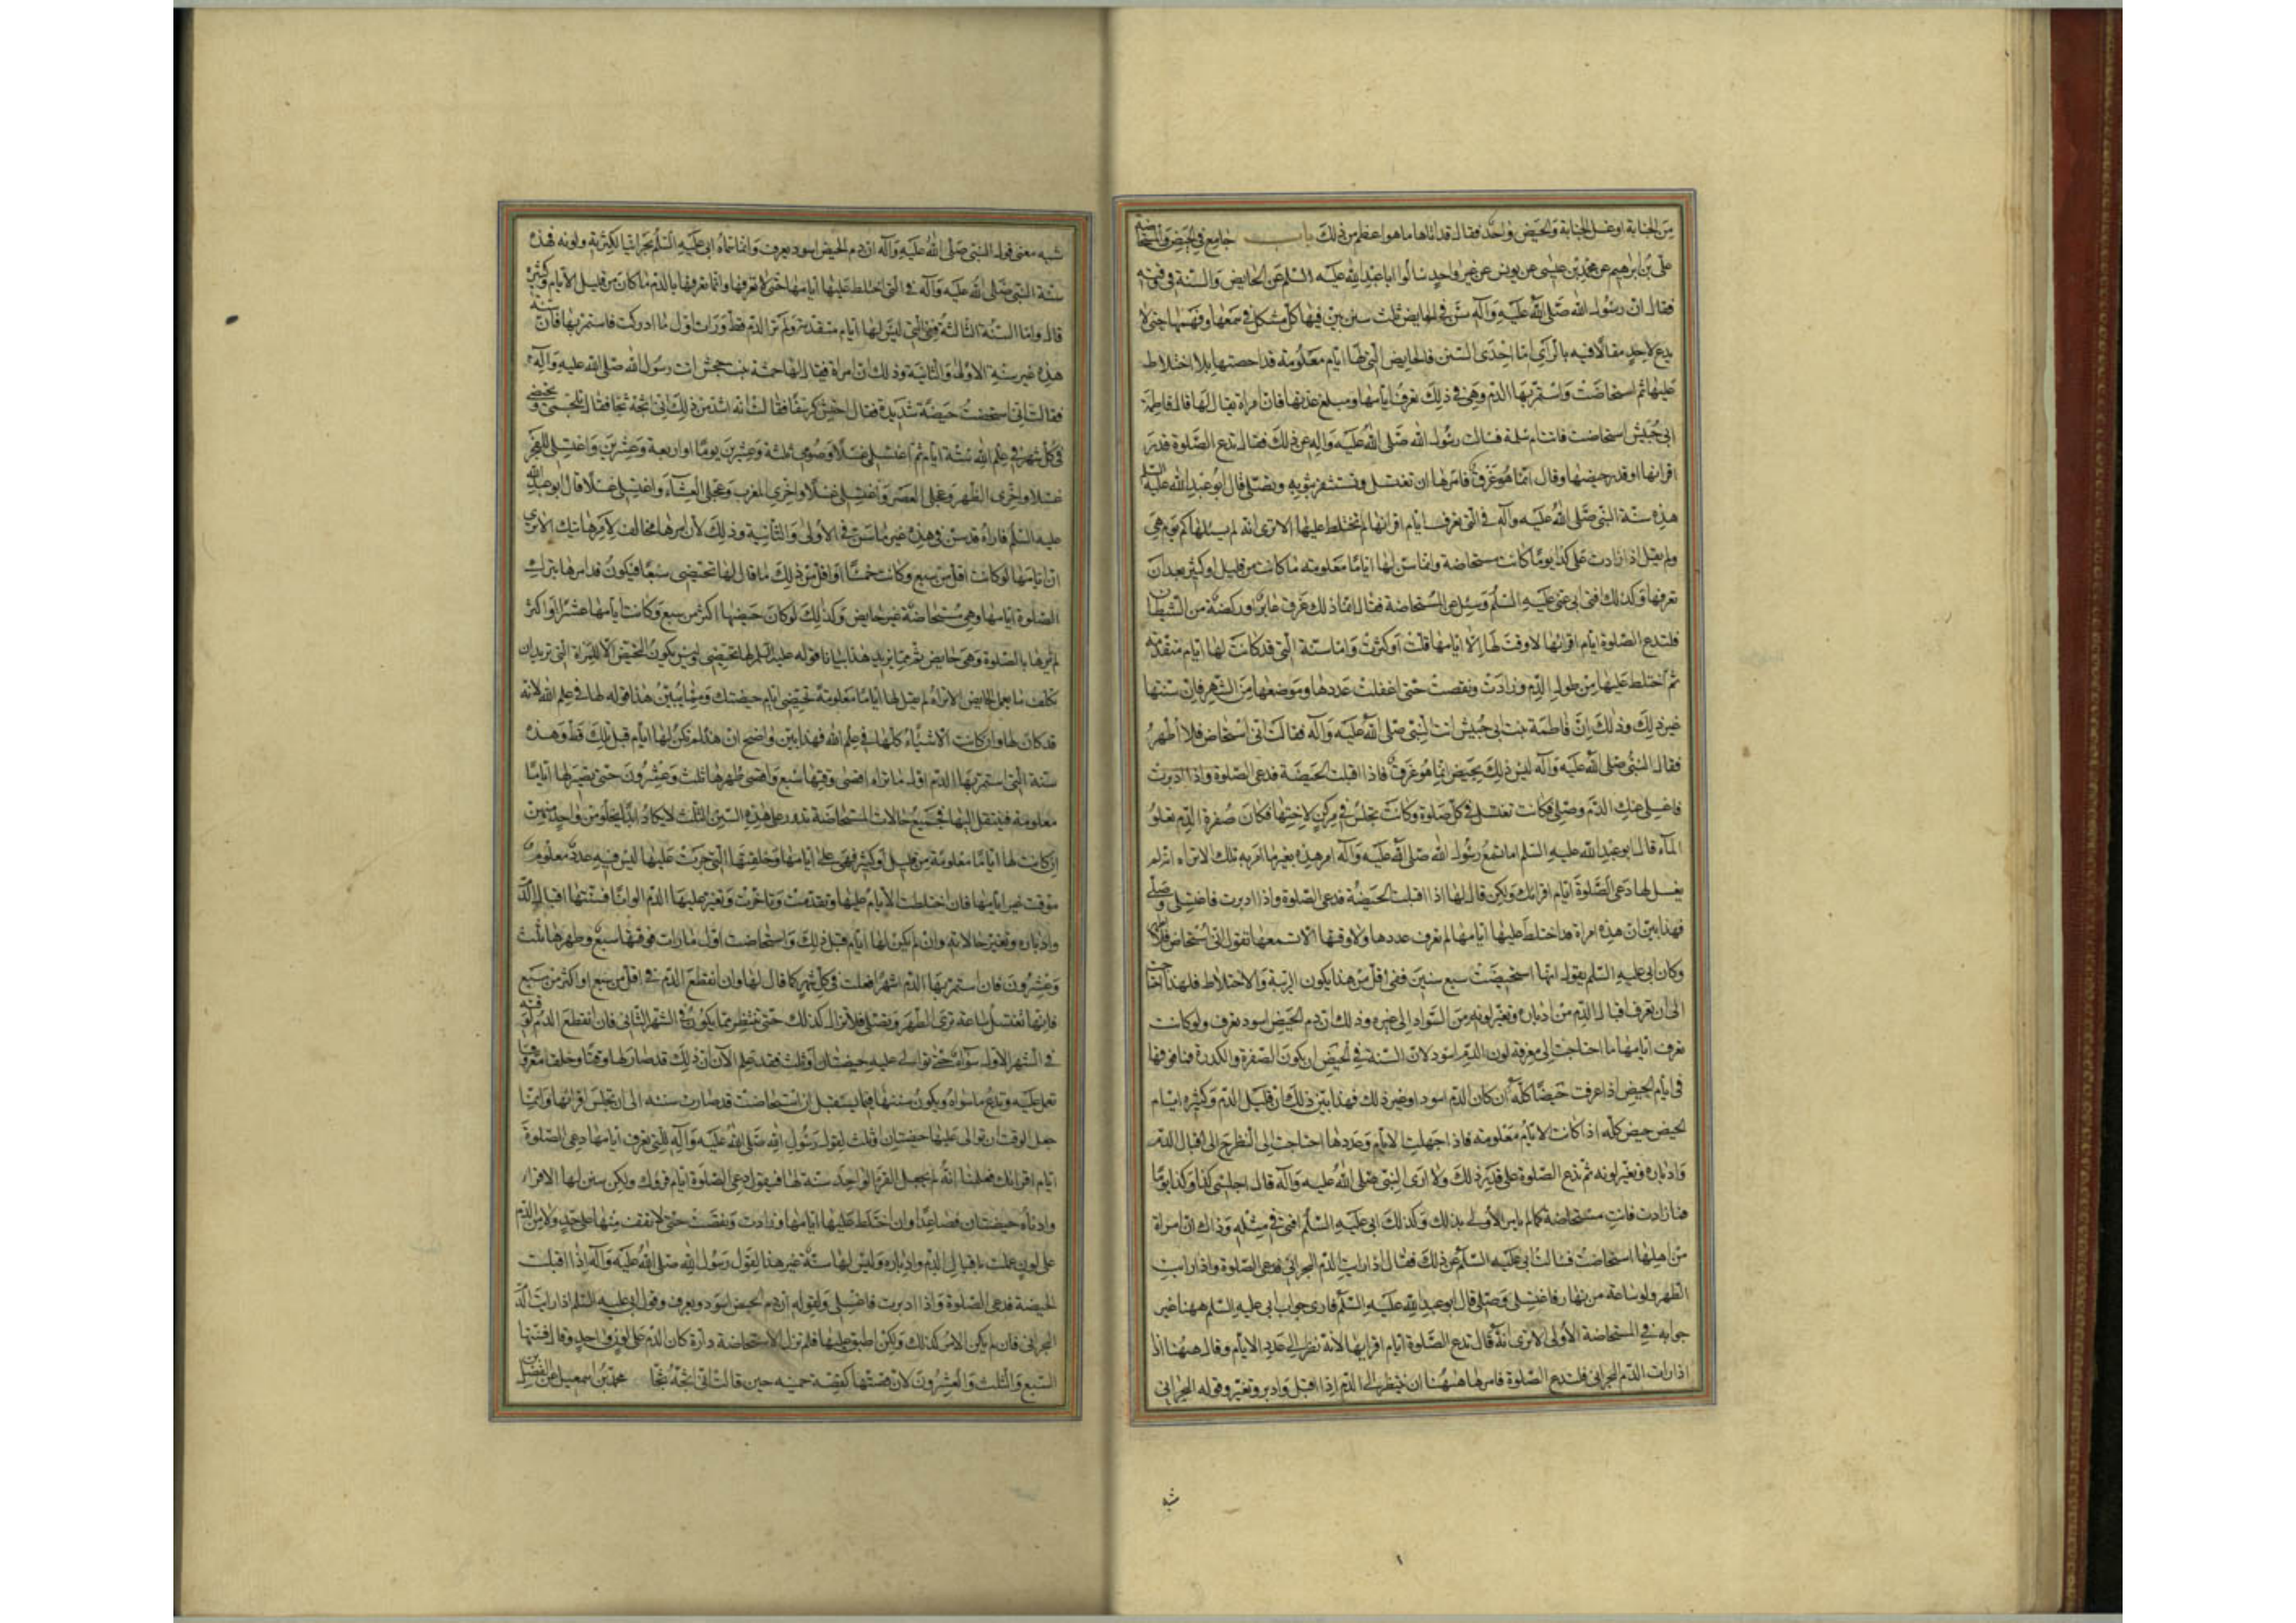 من الجنابة او غسل الجنابة والحيض واحد فقال قد اتاها ما هو اعظم من ذلك باب جامع في الحيض والمستحاضة
علي بن ابرهيم عن محمد بن عيسى عن يونس عن غير واحد سالوا ابا عبد الله عليه السلم عن الحايض والسنة في وقته
فقال ان رسول الله صلى الله عليه وآله سن في الحايض ثلث سنن بين فيها كل مشكل لمن سمعها وفهمها حتى لا
يدع لاحد مقالا فيه بالراي اما احدى السنن فالحايض التي لها ايام معلومة قد احصتها بلا اختلاط
عليها ثم استحاضت واستمر بها الدم وهي في ذلك تعرف ايامها ومبلغ عددها فان امراة يقال لها فاطمة
ابي حبيش استحاضت فاتت ام سلمة فسالت رسول الله صلى الله عليه واله عن ذلك فقال تدع الصلوة قدر
اقرائها او قدر حيضها وقال انما هو عرق فامرها ان تغتسل وتستثفر بثوب وتصلي قال ابو عبد الله عليه السلم
هذه سنة النبي صلى الله عليه وآله في التي تعرف ايام اقرائها لم تختلط عليها الا ترى انه لم يسئلها كم يوم هي
ولم يقل اذا زادت على كذا يوما كانت مستحاضة وانما سن لها اياما معلومة ما كانت من قليل او كثير بعد ان
تعرفها وكذلك افتى ابي عليه السلم وسئل عن المستحاضة فقال انما ذلك عرق عابر او ركضة من الشيطان
فلتدع الصلوة ايام اقرائها لا وقت لها الا ايامها قلت او كثرت واما سنة التي قد كانت لها ايام متقدمة
ثم اختلط عليها من طول الدم وزادت ونقصت حتى اغفلت عددها وموضعها من الشهر فان سنتها
غير ذلك وذلك ان فاطمة بنت ابي حبيش اتت النبي صلى الله عليه وآله فقالت اني استحاض فلا اطهر
فقال النبي صلى الله عليه وآله ليس ذلك بحيض انما هو عرق فاذا اقبلت الحيضة فدعي الصلوة واذا ادبرت
فاغسلي عنك الدم وصلي فكانت تغتسل في كل صلوة وكانت تجلس في مركن لاختها فكان صفرة الدم تعلو
الماء قال ابو عبد الله عليه السلم اما تسمع رسول الله صلى الله عليه وآله امر هذه بغير ما امر به تلك الا تراه لم
يقل لها دعي الصلوة ايام اقرائك ولكن قال لها اذا اقبلت الحيضة فدعي الصلوة واذا ادبرت فاغتسلي وصلي
فهذا يبين ان هذه امراة قد اختلط عليها ايامها لم تعرف عددها ولا وقتها الا تسمعها تقول اني استحاض فلا اطهر
وكان ابي عليه السلم يقول انها استحيضت سبع سنين ففي اقل من هذا يكون الريبة والاختلاط فلهذا احتاجت
الى ان تعرف اقبال الدم من ادباره وتغير لونه من السواد الى غيره وذلك ان دم الحيض اسود يعرف ولو كانت
تعرف ايامها ما احتاجت الى معرفة لون الدم اسود لان السنة في الحيض ان يكون الصفرة والكدرة فما فوقها
في ايام الحيض اذا عرفت حيضا كله ان كان الدم اسود او غير ذلك فهذا يبين ذلك ان قليل الدم وكثيره ايام
الحيض حيض كله اذا كانت الايام معلومة فاذا جهلت الايام وعددها احتاجت الى النظر ح الى اقبال الدم
وادباره وتغير لونه ثم تدع الصلوة على قدر ذلك ولا ارى النبي صلى الله عليه وآله قال اجلسي كذا وكذا يوما
فما زادت فانت مستحاضة كما لم يامر الأولى بذلك وكذلك ابي عليه السلم افتى في مثله وذاك ان امراة
من اهلها استحاضت فسالت ابي عليه السلم عن ذلك فقال اذا رايت الدم البحراني فدعي الصلوة واذا رايت
الطهر ولو ساعة من نهار فاغتسلي وصلي قال ابو عبد الله عليه السلم فارى جواب ابي عليه السلم ههنا غير
جوابه في المستحاضة الأولى الا ترى انه قال تدع الصلوة ايام اقرائها لانه نظر الى عدد الايام وقال ههنا اذا
اذا رات الدم البحراني فلتدع الصلوة فامرها ههنا ان تنظر الى الدم اذا اقبل وادبر وتغير وقوله البحراني
شبه
شبه معنى قول النبي صلى الله عليه وآله ان دم الحيض اسود يعرف وانما سماه ابي عليه السلم بحرانيا لكثرته ولونه فهذه
سنة النبي صلى الله عليه وآله في التي اختلط عليها ايامها حتى لا تعرفها وانما تعرفها بالدم ما كان من قليل الايام وكثيره
قال واما السنة الثالثة فهي التي ليس لها ايام متقدمة ولم تر الدم قط ورات اول ما ادركت فاستمر بها فان سنة
هذه غير سنة الاولى والثانية وذلك ان امراة يقال لها حمنة بنت جحش اتت رسول الله صلى الله عليه وآله
فقالت اني استحضت حيضة شديدة فقال احتشي كرسفا فقالت انه اشد من ذلك اني اثجه ثجا فقال تلجمي وتحيضي
في كل شهر في علم الله ستة ايام ثم اغتسلي غسلا وصومي ثلثة وعشرين يوما او اربعة وعشرين واغتسلي للفجر
غسلا واخري الظهر وعجلي العصر واغتسلي غسلا واخري المغرب وعجلي العشاء واغتسلي غسلا قال ابو عبد الله
عليه السلم فاراه قد سن في هذه غير ما سن في الأولى والثانية وذلك لان امرها مخالف لامر هاتيك الا ترى
ان ايامها لو كانت اقل من سبع وكانت خمسا او اقل من ذلك ما قال لها تحيضي سبعا فيكون قد امرها بترك
الصلوة ايامها وهي مستحاضة غير حايض وكذلك لو كان حيضها اكثر من سبع وكانت ايامها عشرا او اكثر
لم يامرها بالصلوة وهي حايض ثم مما يزيد هذا بيانا قوله عليه السلم لها تحيضي وليس يكون التحيض الا للمراة التي تريد ان
تكلف ما تعمل الحايض الا تراه لم يقل لها اياما معلومة تحيضي ايام حيضتك ومما يبين هذا قوله لها في علم الله لانه
قد كان لها وان كانت الاشياء كلها في علم الله فهذا بين واضح ان هذه لم تكن لها ايام قبل تلك قط وهذه
سنة التي استمر بها الدم اول ما تراه اقصى وقتها سبع واقصى طهرها ثلث وعشرون حتى يصير لها اياما
معلومة فينتقل اليها فجميع حالات المستحاضة تدور على هذه السنن الثلث لا يكاد ابدا يخلو من واحدة منهن
ان كانت لها اياما معلومة من قليل او كثير فهي على ايامها وخلقتها التي جرت عليها ليس فيه عدد معلوم
موقت غير ايامها فان اختلطت الايام عليها وتقدمت وتاخرت وتغير عليها الدم الوانا فسنتها اقبال الدم
وادباره وتغير حالاته وان لم يكن لها ايام قبل ذلك واستحاضت اول ما رات فوقتها سبع وطهرها ثلث
وعشرون فان استمر بها الدم اشهرا فعلت في كل شهر كما قال لها وان انقطع الدم في اقل من سبع او اكثر من سبع
فانها تغتسل ساعة ترى الطهر وتصلي فلا تزال كذلك حتى تنتظر ما يكون في الشهر الثاني فان انقطع الدم لوقته
في الشهر الاول سواء حتى توالى عليه حيضتان او ثلث فقد علم الآن ان ذلك قد صار لها وقتا وخلقا معروفا
تعمل عليه وتدع ما سواه ويكون سنتها فيما يستقبل ان استحاضت قد صارت سنة الى ان تجلس اقرائها وانما
جعل الوقت ان توالى عليها حيضتان او ثلث لقول رسول الله صلى الله عليه وآله للتي تعرف ايامها دعي الصلوة
ايام اقرائك فعلمنا انه لم يجعل القرء الواحد سنة لها فيقول دعي الصلوة ايام قرؤك ولكن سن لها الاقراء
وادناه حيضتان فصاعدا وان اختلط عليها ايامها وزادت ونقصت حتى لا تقف منها على حد ولا من الدم
على لون عملت باقبال الدم وادباره وليس لها سنة غير هذا لقول رسول الله صلى الله عليه وآله اذا اقبلت
الحيضة فدعي الصلوة واذا ادبرت فاغتسلي ولقوله ان دم الحيض اسود يعرف وقول ابي عليه السلم اذا رايت الدم
البحراني فان لم يكن الامر كذلك ولكن اطبق عليها فلم تزل الاستحاضة دارة كان الدم على لون واحد وقال فسنتها
السبع والثلث والعشرون لان قصتها كقصة حمنة حين قالت اني اثجه ثجا محمد بن اسمعيل عن الفضل بن